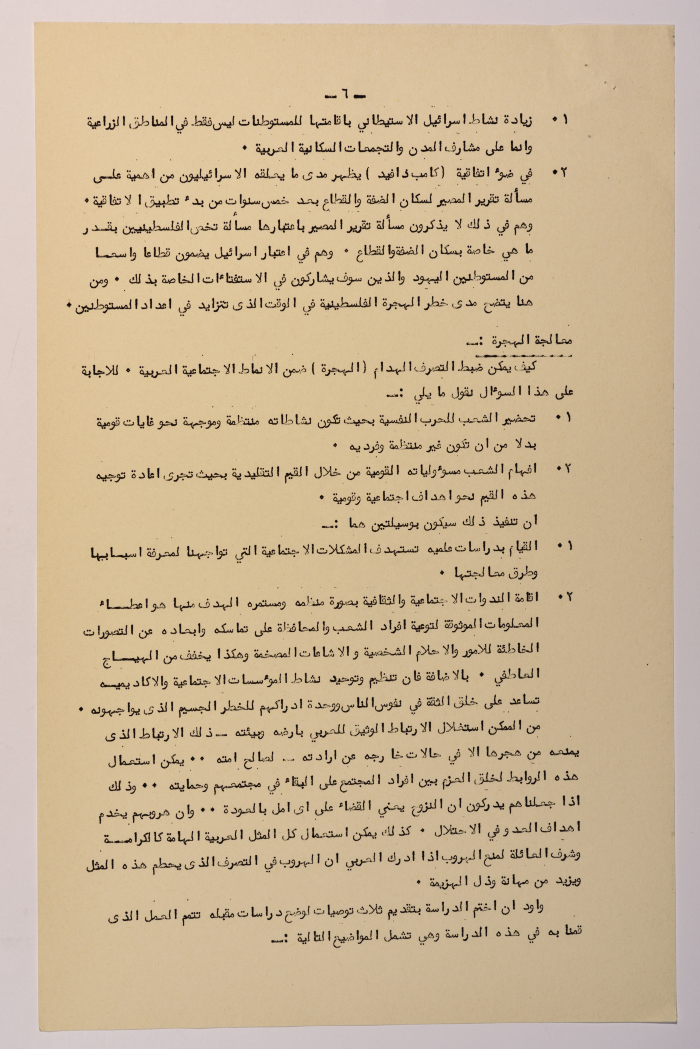 – ٦ –
٠١ زيادة نشاط اسرائيل الاستيطاني باقامتها للمستوطنات ليس فقط في المناطق الزراعية
وانما على مشارف المدن والتجمعات السكانية العربية ٠
٠٢ في ضوء اتفاقية (كامب دافيد) يظهر مدى ما يعلقه الاسرائيليون من اهمية علــى
مسألة تقرير المصير لسكان الضفة والقطاع بعد خمس سنوات من بدء تطبيق الاتفاقية ٠
وهم في ذلك لا يذكرون مسألة تقرير المصير باعتبارها مسألة تخص الفلسطينيين بقــدر
ما هي خاصة بسكان الضفة والقطاع ٠ وهم في اعتبار اسرائيل يضمون قطاعا واسعــا
من المستوطنين اليهود والذين سوف يشاركون في الاستفتاءات الخاصة بذلك ٠ ومن
هنا يتضح مدى خطر الهجرة الفلسطينية في الوقت الذى تتزايد في اعداد المستوطنين ٠
معالجة الهجرة :ــ
كيف يمكن ضبط التصرف الهدام (الهجرة) ضمن الانماط الاجتماعية العربية ٠ للاجابة
على هذا السوءال نقول ما يلي :ــ
٠١ تحضير الشعب للحرب النفسية بحيث تكون نشاطاته منتظمة وموجهة نحو غايات قومية
بدلا من ان تكون غير منتظمة وفرديه ٠
٠٢ افهام الشعب مسوءولياته القومية من خلال القيم التقليدية بحيث تجرى اعادة توجيه
هذه القيم نحو اهداف اجتماعية وقومية ٠
ان تنفيذ ذلك سيكون بوسيلتين هما :ــ
٠١ القيام بدراسات علميه تستهدف المشكلات الاجتماعية التي تواجهنا لمعرفة اسبابها
وطرق معالجتها ٠
٠٢ اقامة الندوات الاجتماعية والثقافية بصورة منظمه ومستمره الهدف منها هو اعطــاء
المعلومات الموثوقة لتوعية افراد الشعب والمحافظة على تماسكه وابعاده عن التصورات
الخاطئة للامور والاحلام الشخصية والاشاعات المضخمة وهكذا يخفف من الهيــاج
العاطفي ٠ بالاضافة فان تنظيم وتوحيد نشاط الموءسسات الاجتماعية والاكاديميــه
تساعد على خلق الثقة في نفوس الناس ووحدة ادراكهم للخطر الجسيم الذى يواجهونه ٠
من الممكن استغلال الارتباط الوثيق للعربي بارضه وبيئته ــ ذلك الارتباط الذى
يمنعه من هجرها الا في حالات خارجه عن ارادته ــ لصالح امته ٠٠ يمكن استعمال
هذه الروابط لخلق العزم بين افراد المجتمع على البقاء في مجتمعهم وحمايته ٠٠ وذلك
اذا جعلناهم يدركون ان النزوح يعني القضاء على اى امل بالعودة ٠٠ وان هروبهم يخدم
اهداف العدو في الاحتلال ٠ كذلك يمكن استعمال كل المثل العربية الهامة كالكرامــة
وشرف العائلة لمنع الهروب اذا ادرك العربي ان الهروب في التصرف الذى يحطم هذه المثل
ويزيد من مهانة وذل الهزيمة ٠
واود ان اختم الدراسة بتقديم ثلاث توصيات لوضع دراسات مقبله تتمم العمل الذى
قمنا به في هذه الدراسة وهي تشمل المواضيع التالية :ــ